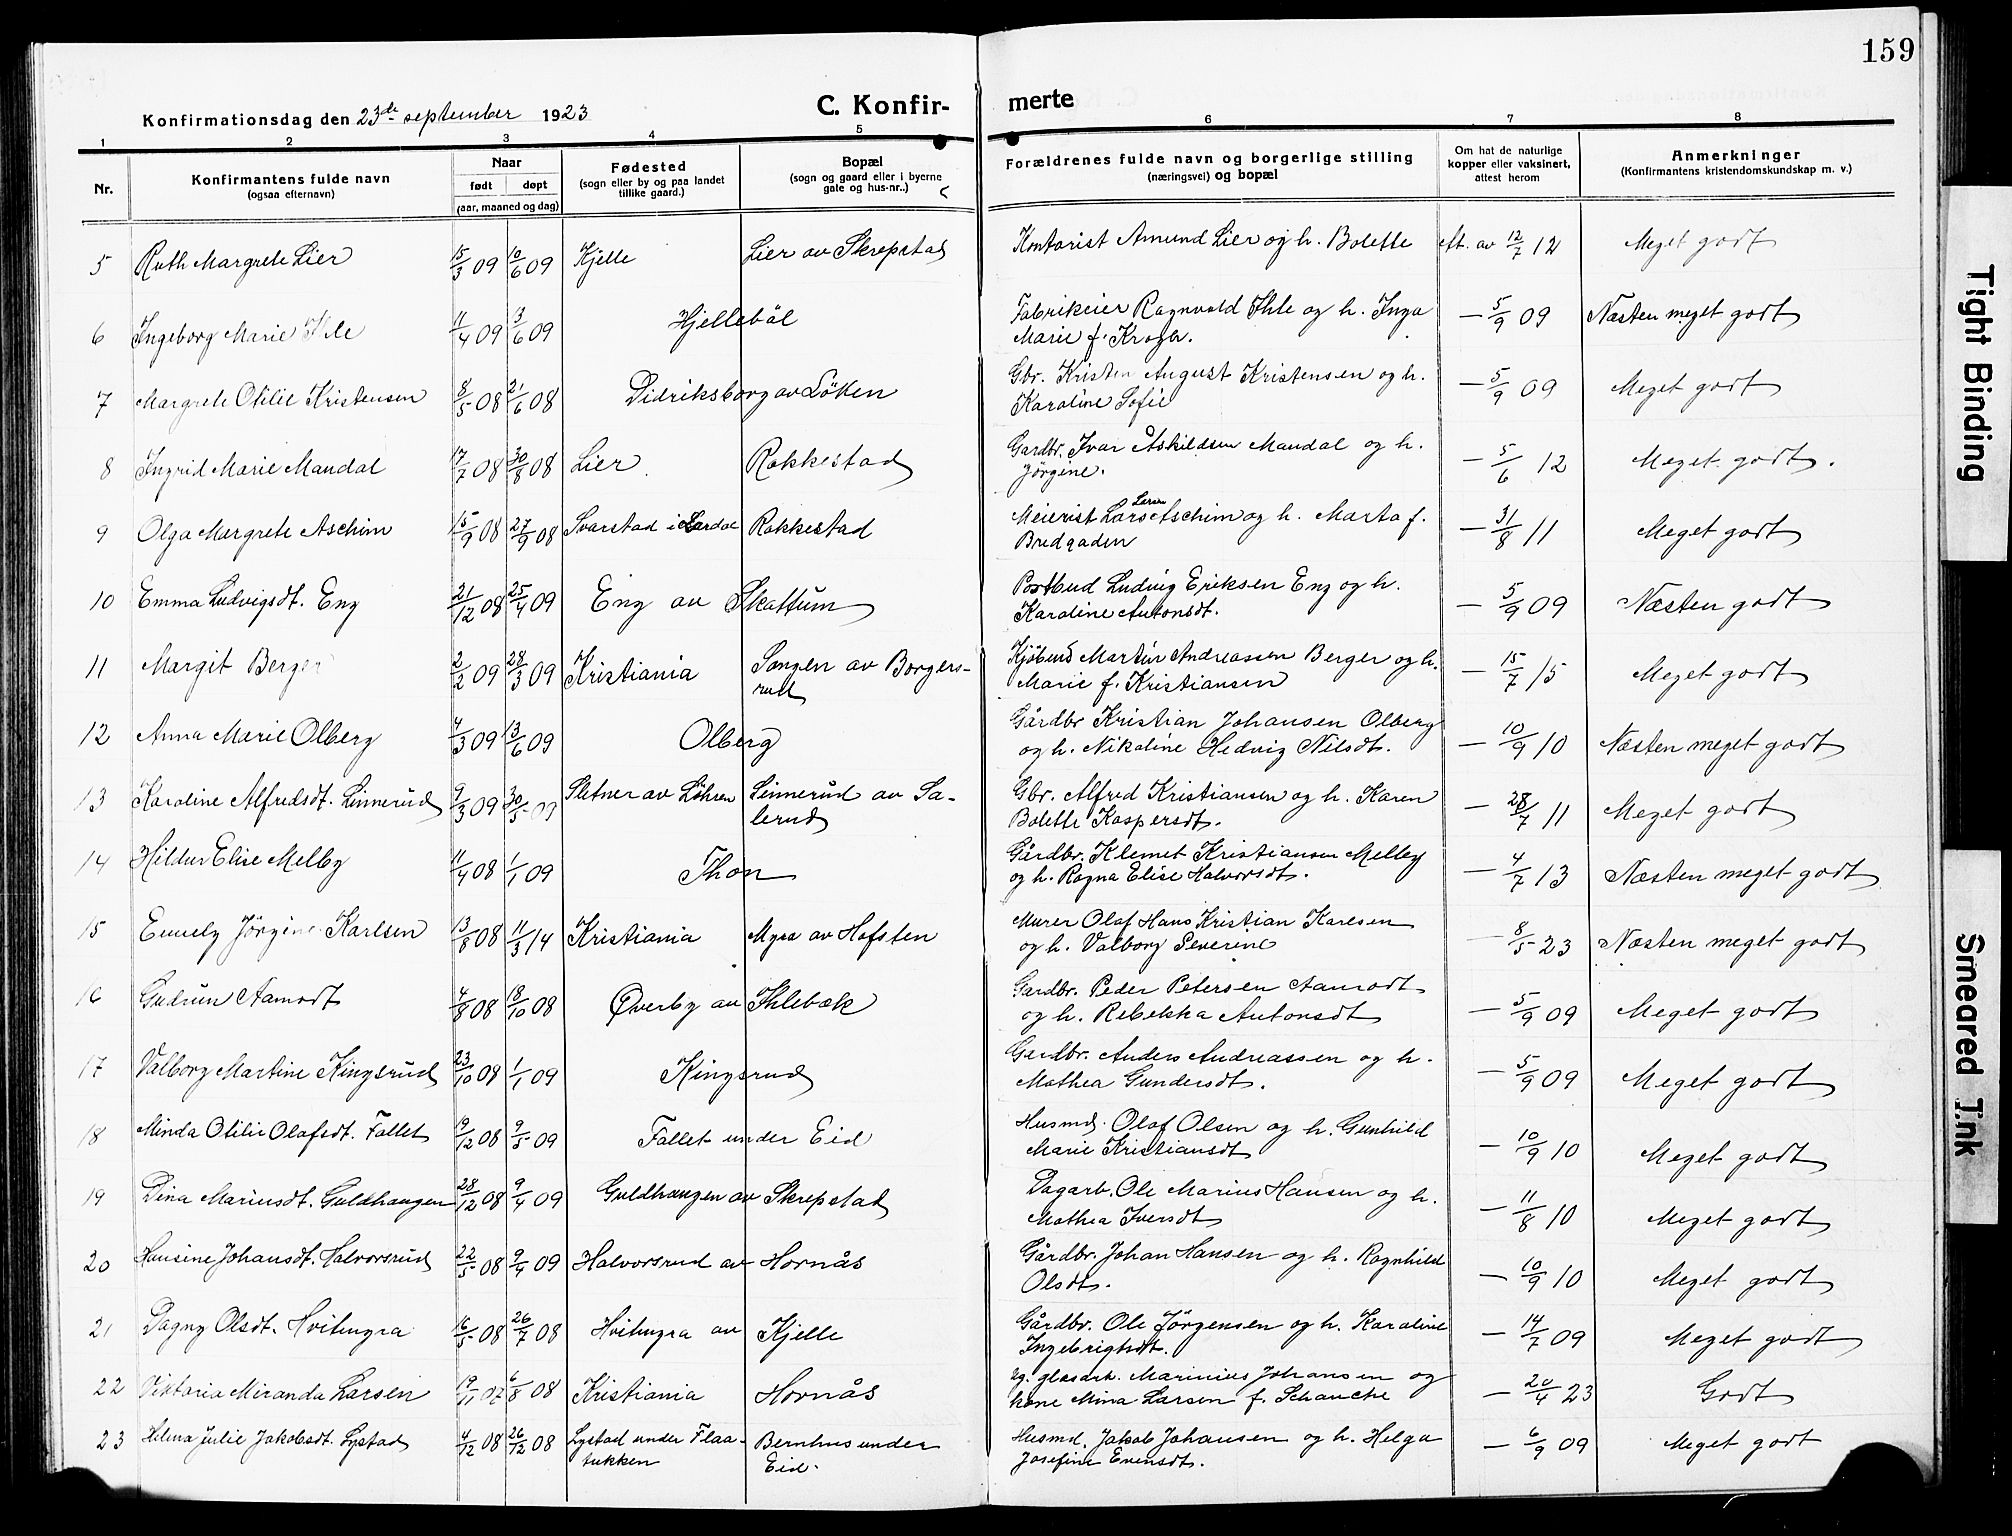 159
Konfirmationsdag den 23de september 1923
C. Konfir-
merte
1 2 3 4 5 6 7 8
Nr.
Konfirmantens fulde navn
(ogsaa efternavn)
Naar
født døpt
(aar, maaned og dag)
Fødested
(sogn eller by og paa landet
tillike gaard.)
Bopæl
(sogn og gaard eller i byerne
gate og hus-nr..)
Forældrenes fulde navn og borgerlige stilling
(næringsvei) og bopæl
Om hat de naturlige
kopper eller vaksinert,
attest herom
Anmerkninger
(Konfirmantens kristendomskundskap m. v.)
5 Ruth Margrete Lier 15/3 09 10/6 09 Kjelle Lier av Skrepstad Kontorist Amund Lier og h. Bolette eft. av 12/7 12 Meget godt
6 Ingeborg Marie Ihle 11/4 09 13/6 09 Hjellebøl Fabrikeier Ragnvald Ihle og h. Inga
Marie f. Krogh. — 5/9 09 Næsten meget godt
7 Margrete Otilie Kristensen 8/5 08 21/6 08 Didriksborg av Løken Gbr. Kristen August Kristensen og h.
Karoline Sofie — 5/9 09 Meget godt
8 Ingrid Marie Mandal 17/7 08 30/8 08 Lier Rakkestad Gardbr. Ivar Askildsen Mandal og h.
Jörgine. — 5/6 12 Meget godt.
9 Olga Margrete Aschim 15/9 08 27/9 08 Svarstad i Lardal Rakkestad Meierist Lars Larsen Aschim og h. Marta f.
Bredgaden — 31/8 11 Meget godt
10 Emma Ludvigsdt. Eng 21/12 08 25/4 09 Eng av Skattum Postbud Ludvig Eriksen Eng og h.
Karoline Antonsdt. — 5/9 09 Næsten godt
11 Margit Berger 2/2 09 28/3 09 Kristiania Sangen av Borgers-
rud Kjøbmd Martin Andreassen Berger og h.
Marie f. Kristiansen — 15/7 15 Meget godt
12 Anna Marie Olberg 4/3 09 13/6 09 Olberg Gårdbr Kristian Johansen Olberg
og h. Nikoline Hedvig Nilsdt. — 10/9 10 Næsten meget godt
13 Karoline Alfredsdt. Linnerud 9/3 09 30/5 09 Sletner av Løhren Linnerud av Sa-
lerud Gbr. Alfred Kristiansen og h. Karen
Bolette Kaspersdt. — 28/7 11 Meget godt
14 Hildur Elise Melby 11/4 08 1/1 09 Thon Gårdbr. Klemet Kristiansen Melby
og h. Ragna Elise Halvorsdt. — 4/7 13 Næsten meget godt
15 Emely Jörgine Karlsen 13/8 08 11/3 14 Kristiania Myra av Hofsten Murer Olaf Hans Kristian Karlsen
og h. Valborg Severine — 8/5 23 Næsten meget godt
16 Gudrun Aamodt 4/8 08 18/10 08 Øverby av Ihlebæk Gardbr. Peder Petersen Aamodt
og h. Rebekka Antonsdt — 5/9 09 Meget godt
17 Valborg Martine Kingsrud 23/10 08 1/1 09 Kingsrud Gardbr. Anders Andreassen og h.
Mathea Gundersdt. — 5/9 09 Meget godt
18 Minda Otilie Olafsdt. Fallet 19/12 08 9/5 09 Fallet under Eid Husmd. Olaf Olsen og h. Gunhild
Marie Kristiansdt — 10/9 10 Meget godt
19 Dina Mariusdt. Guldhaugen 28/12 08 9/4 09 Guldhaugen av Skrepstad Dagarb. Ole Marius Hansen og h.
Mathea Iversdt — 11/8 10 Meget godt
20 Hansine Johansdt. Halvorsrud 22/5 08 9/4 09 Halvorsrud av Hornås Gårdbr. Johan Hansen og h. Ragnhild
Olsdt. — 10/9 10 Meget godt
21 Dagny Olsdt. Hvitmyra 16/5 08 26/7 08 Hvitmyra av Kjelle Gårdbr. Ole Jørgensen og h. Karoline
Ingebrigtsdt. — 14/7 09 Meget godt
22 Viktoria Miranda Larsen 19/11 07 6/8 08 Kristiania Hornås Marinius Johansen og
kone Mina Larsen f. Schancke — 20/4 23 Godt
23 Helma Julie Jakobsdt. Lystad 4/12 08 26/12 08 Lystad under Flaa-
tukken Bernhus under
Eid. Husmd. Jakob Johansen og h. Helga
Josefine Evensdt. — 6/9 09 Meget godt
Tight Binding
Smeared Ink